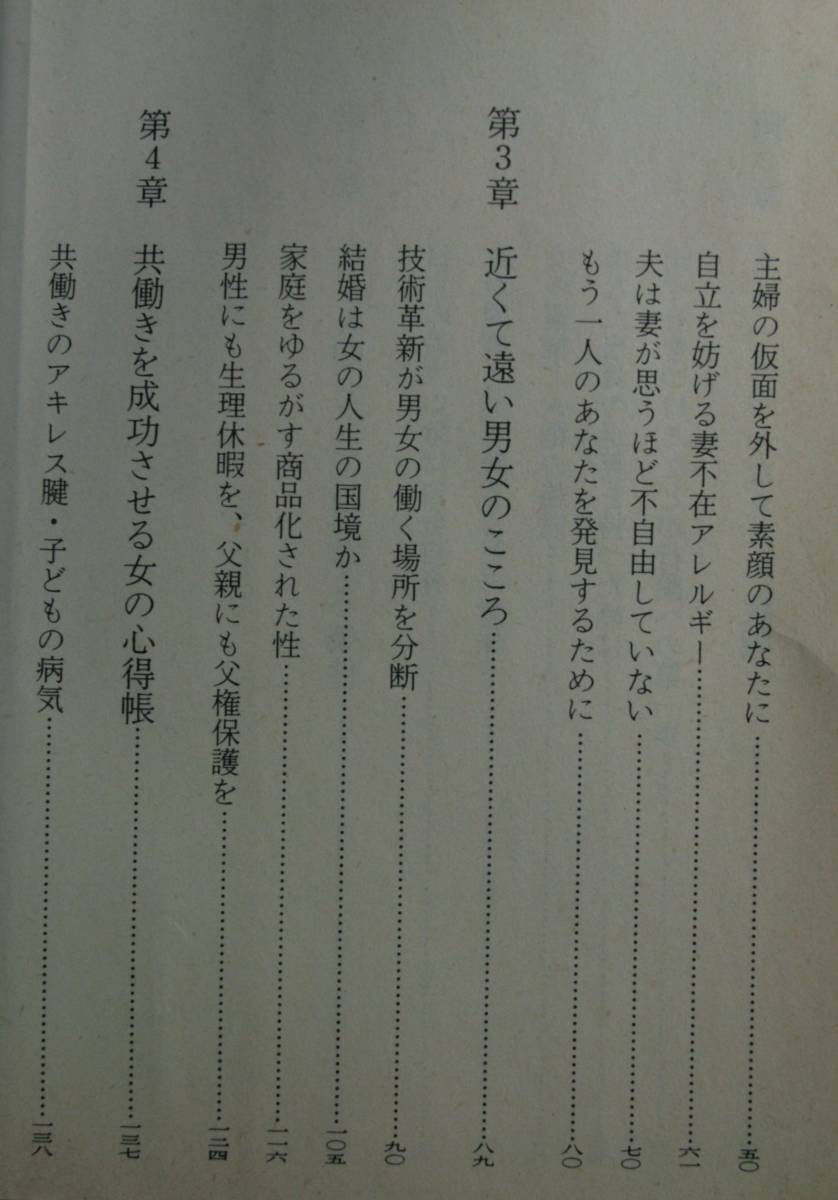 主婦の仮面を外して素顔のあなたに……五〇
自立を妨げる妻不在アレルギー……六一
夫は妻が思うほど不自由していない……七〇
もう一人のあなたを発見するために……八〇
第3章 近くて遠い男女のこころ……八九
技術革新が男女の働く場所を分断……九〇
結婚は女の人生の国境か……一〇五
家庭をゆるがす商品化された性……一一六
男性にも生理休暇を、父親にも父権保護を……一二四
第4章 共働きを成功させる女の心得帳……一三七
共働きのアキレス腱・子どもの病気……一三八